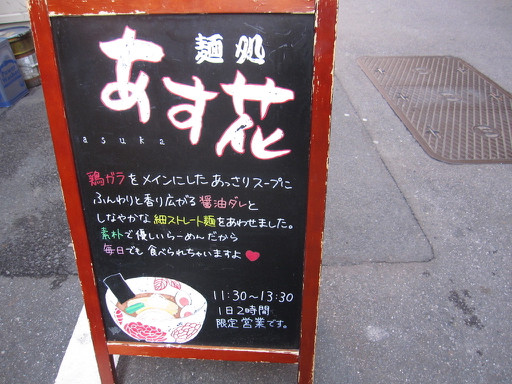 麺処
あす花
asuka
鶏ガラをメインにしたあっさりスープに
ふんわりと香り広がる醤油ダレと
しなやかな細ストレート麺をあわせました。
素朴で優しいらーめんだから
毎日でも食べられちゃいますよ♥
11:30～13:30
1日2時間
限定営業です。